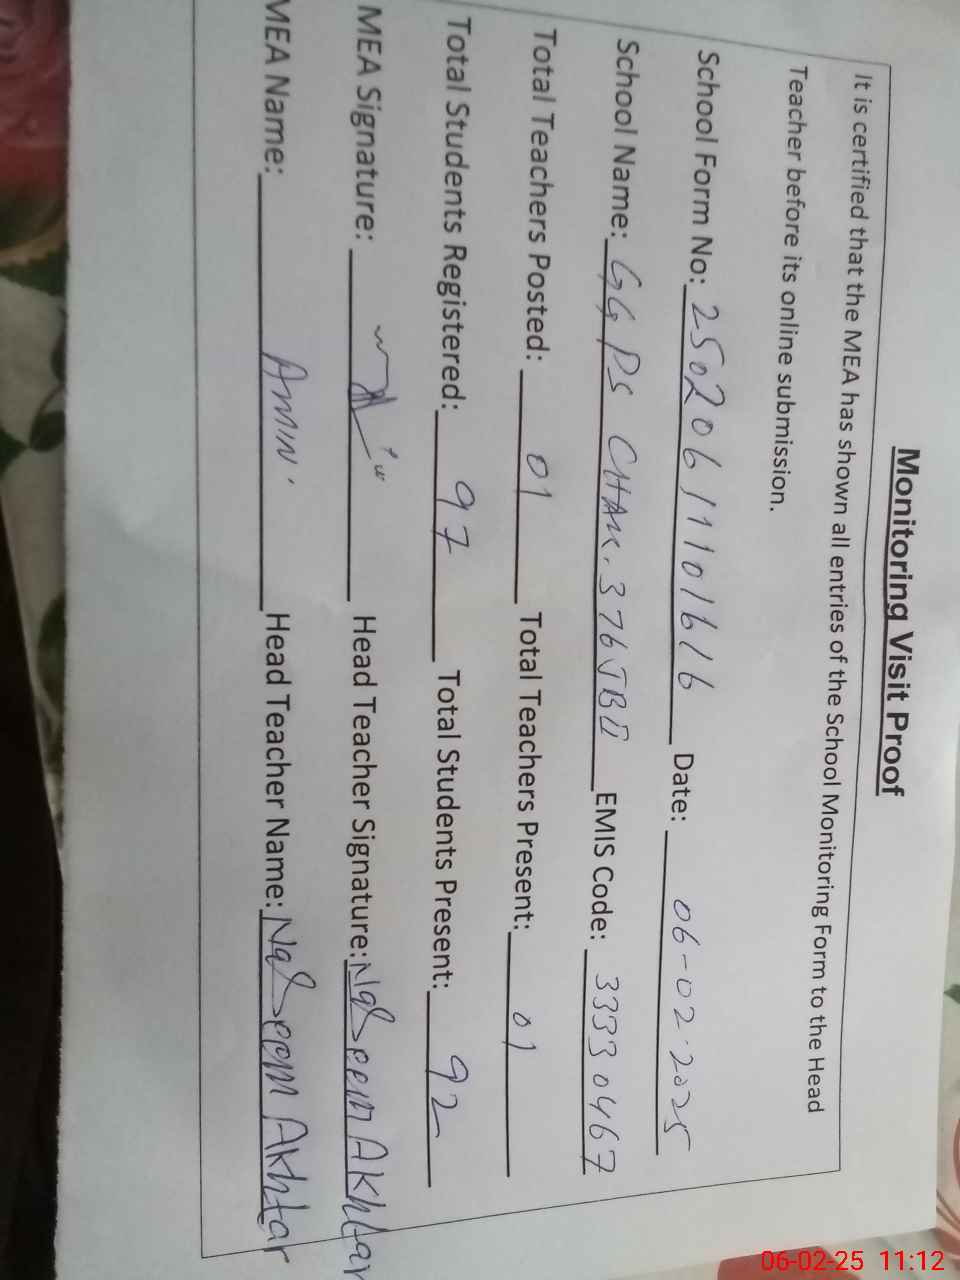 Monitoring Visit Proof
It is certified that the MEA has shown all entries of the School Monitoring Form to the Head
Teacher before its online submission.
School Form No: 25020611101616 Date: 06-02-2025
School Name: GGPS CHAK. 376 JB II EMIS Code: 33330467
Total Teachers Posted: 01 Total Teachers Present: 01
Total Students Registered: 97 Total Students Present: 92
MEA Signature: Head Teacher Signature: Naseem Akhtar
MEA Name: AMIN. Head Teacher Name: Naseem Akhtar
06-02-25 11:12